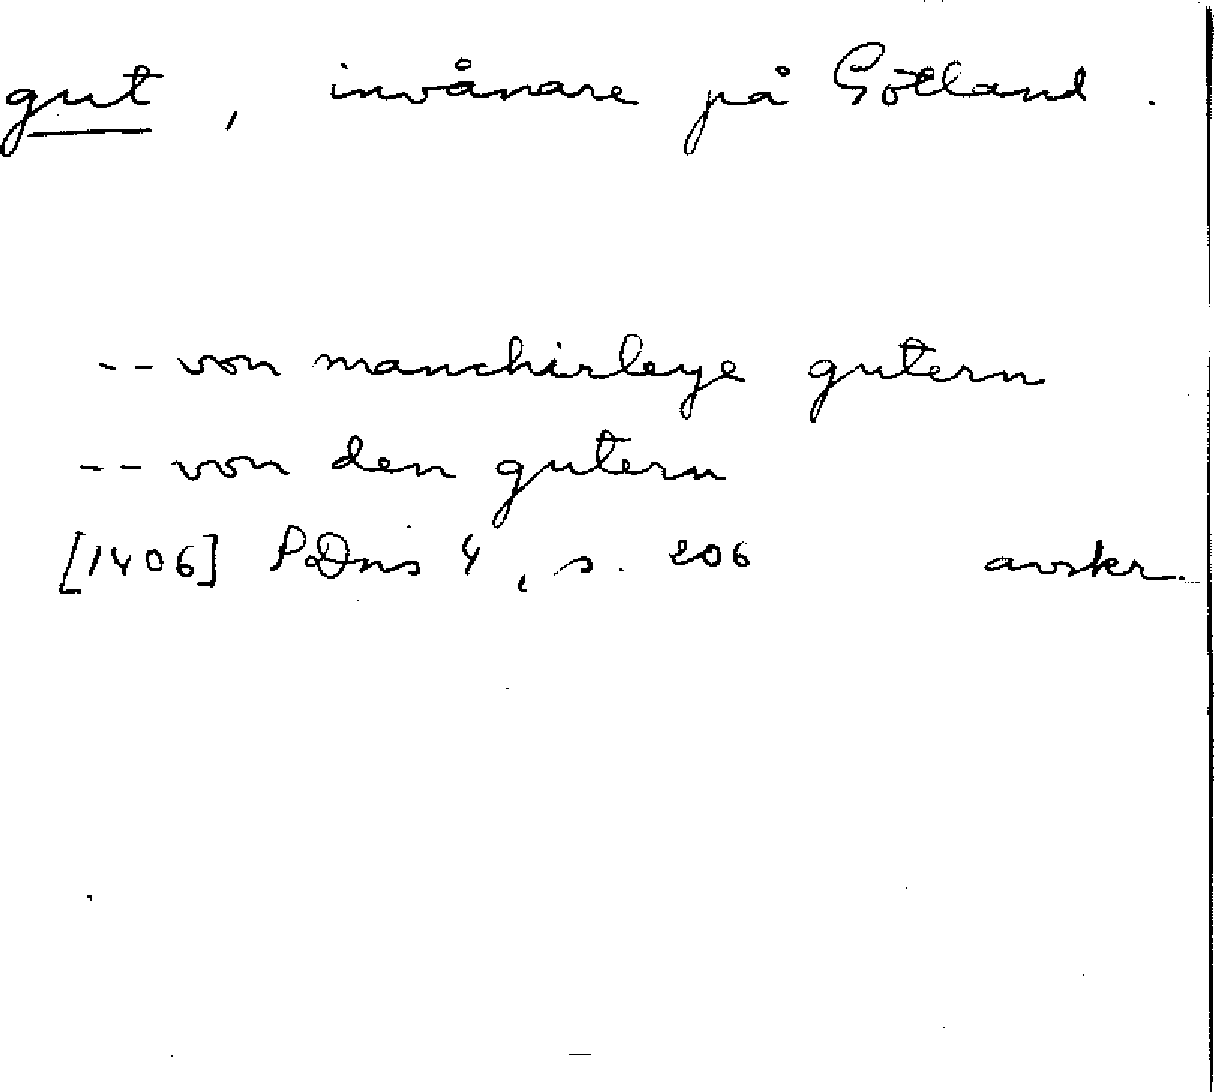 gut, invånare på Gotland.
-- von manchirleye gutern
-- von den gutern
[1406] PoDns 4, s. 206 avskr.